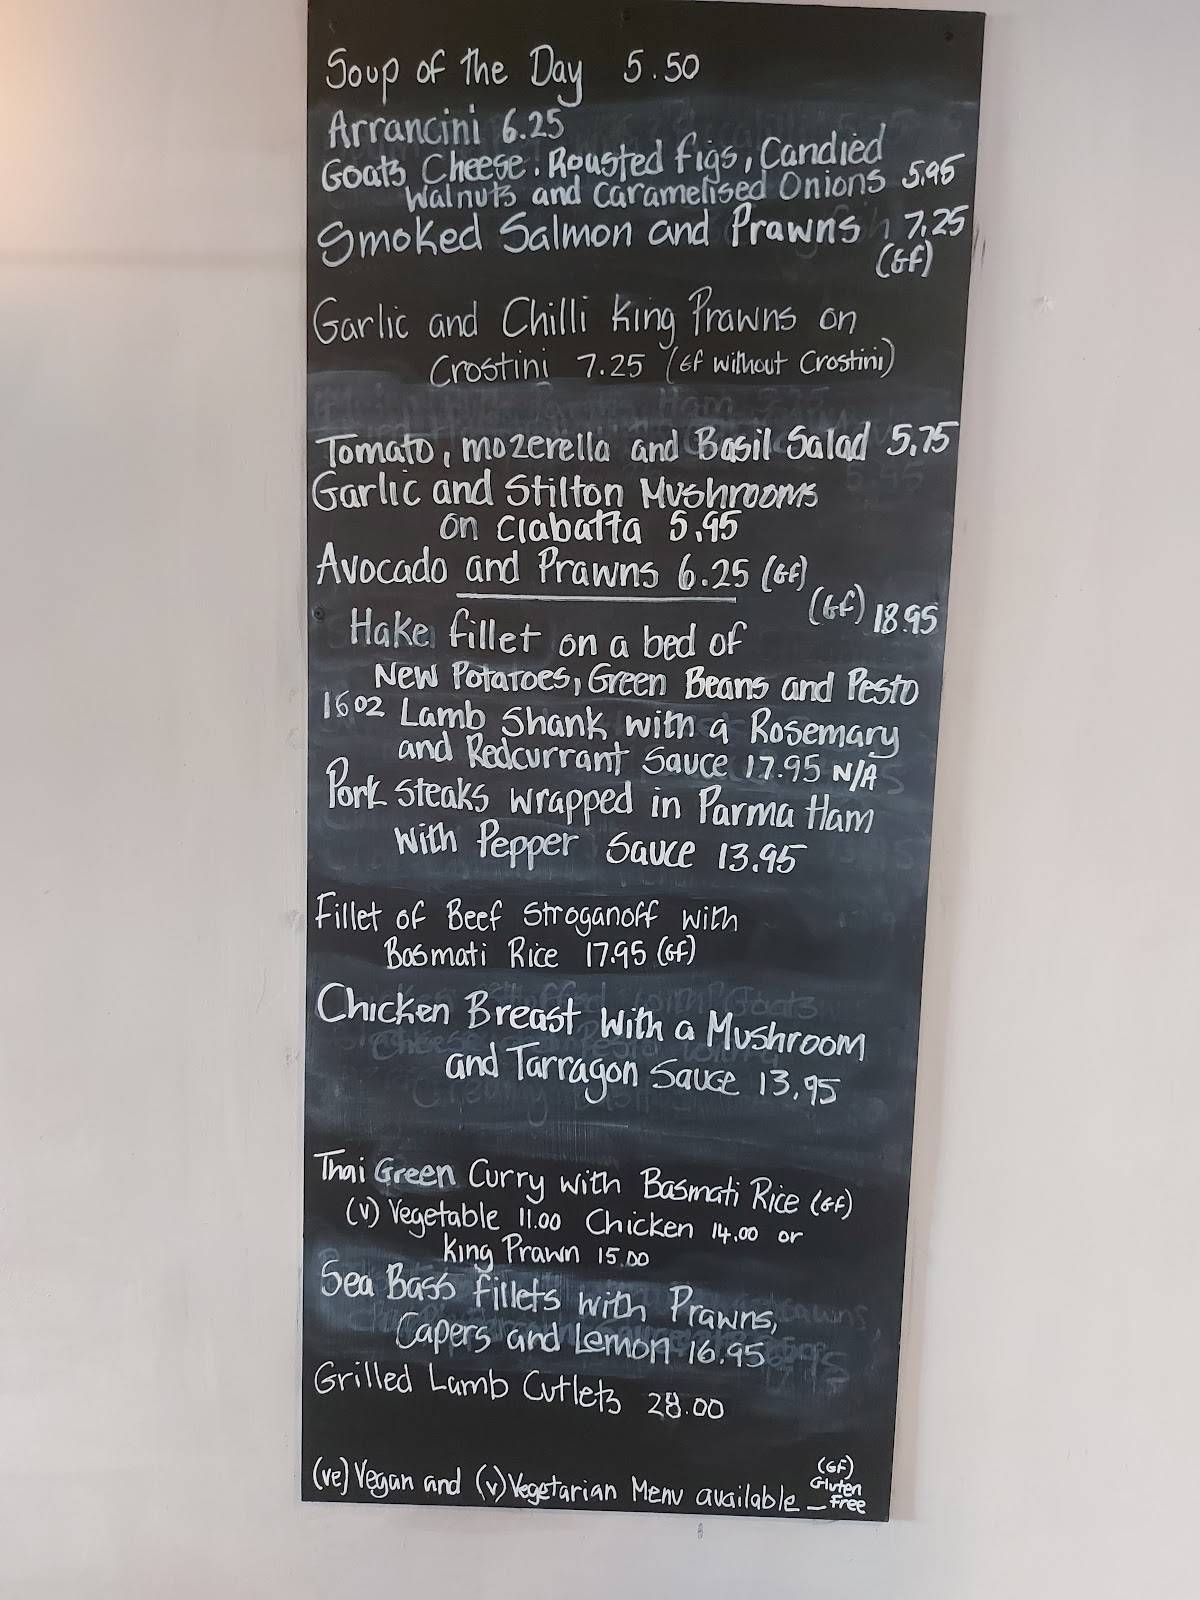 Soup of the Day 5.50
Arrancini 6.25
Goats Cheese. Roasted Figs, Candied
Walnuts and Caramelised Onions 5.95
Smoked Salmon and Prawns 7.25
(GF)
Garlic and Chilli King Prawns on
Crostini 7.25 (GF without Crostini)
Tomato, mozerella and Basil Salad 5.75
Garlic and Stilton Mushrooms
on Ciabatta 5.95
Avocado and Prawns 6.25 (GF)
(GF) 18.95
Hake fillet on a bed of
New Potatoes, Green Beans and Pesto
16oz Lamb Shank with a Rosemary
and Redcurrant Sauce 17.95 N/A
Pork steaks wrapped in Parma Ham
with Pepper Sauce 13.95
Fillet of Beef Stroganoff with
Basmati Rice 17.95 (GF)
Chicken Breast with a Mushroom
and Tarragon Sauce 13.95
Thai Green Curry with Basmati Rice (GF)
(v) Vegetable 11.00 Chicken 14.00 or
King Prawn 15.00
Sea Bass fillets with Prawns,
Capers and Lemon 16.95
Grilled Lamb Cutlets 28.00
(ve) Vegan and (v) Vegetarian Menu available
(GF)
Gluten
Free